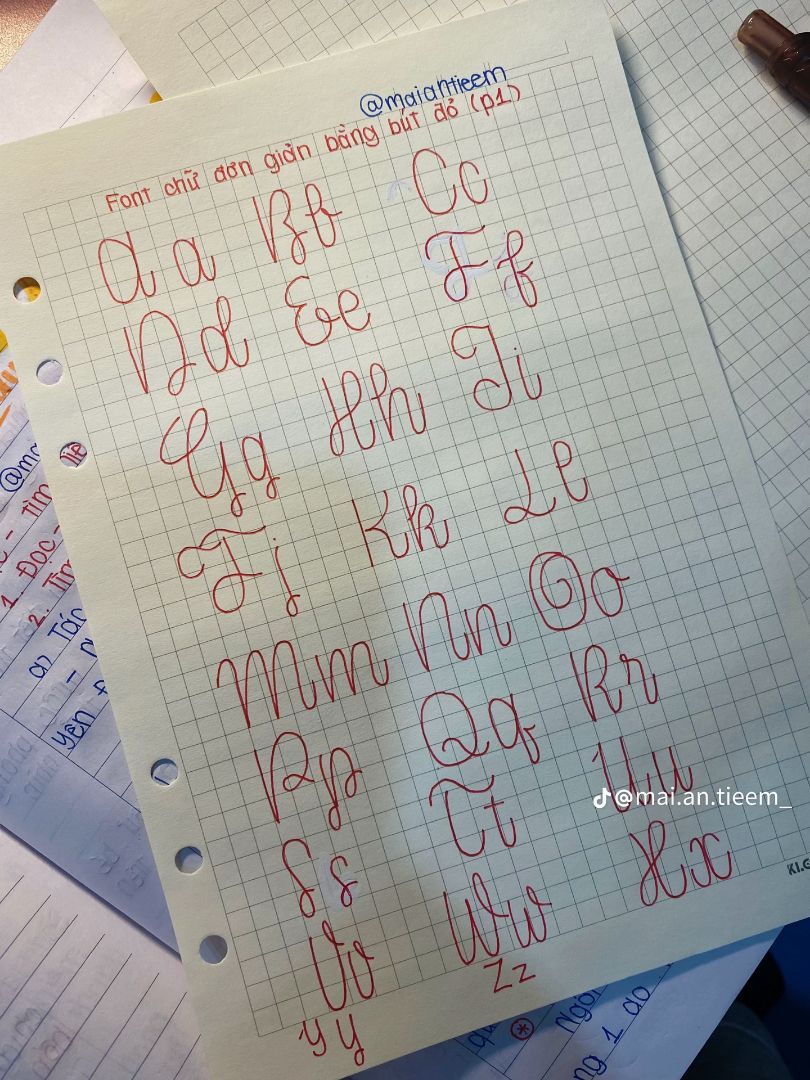 @maiantieem
Font chữ đơn giản bằng bút đỏ (p1)
A a B b C c
D d E e F f
G g H h I i
J j K k L l
M m N n O o
P p Q q R r
S s T t U u
V v W w X x
y y Z z
@mai.an.tieem_
KI.G
@ma
- Tìm
1 Đọc -
2. Tìm
a) Tác
yên
Ngôi
ng 1 do